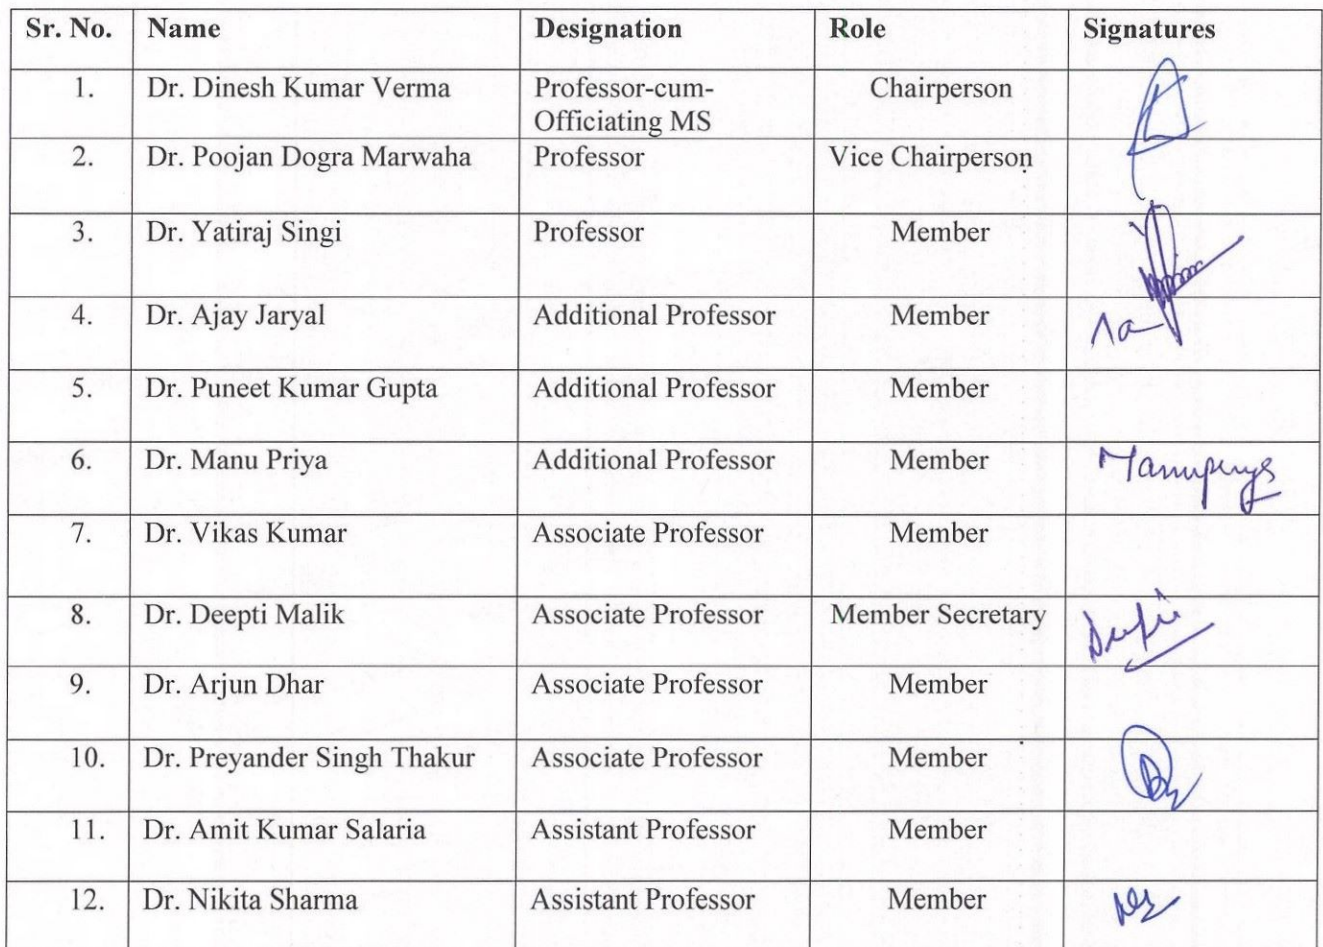 Sr. No. Name Designation Role Signatures
1. Dr. Dinesh Kumar Verma Professor-cum- Chairperson
Officiating MS
2. Dr. Poojan Dogra Marwaha Professor Vice Chairperson
3. Dr. Yatiraj Singi Professor Member
4. Dr. Ajay Jaryal Additional Professor Member
5. Dr. Puneet Kumar Gupta Additional Professor Member
6. Dr. Manu Priya Additional Professor Member
7. Dr. Vikas Kumar Associate Professor Member
8. Dr. Deepti Malik Associate Professor Member Secretary
9. Dr. Arjun Dhar Associate Professor Member
10. Dr. Preyander Singh Thakur Associate Professor Member
11. Dr. Amit Kumar Salaria Assistant Professor Member
12. Dr. Nikita Sharma Assistant Professor Member